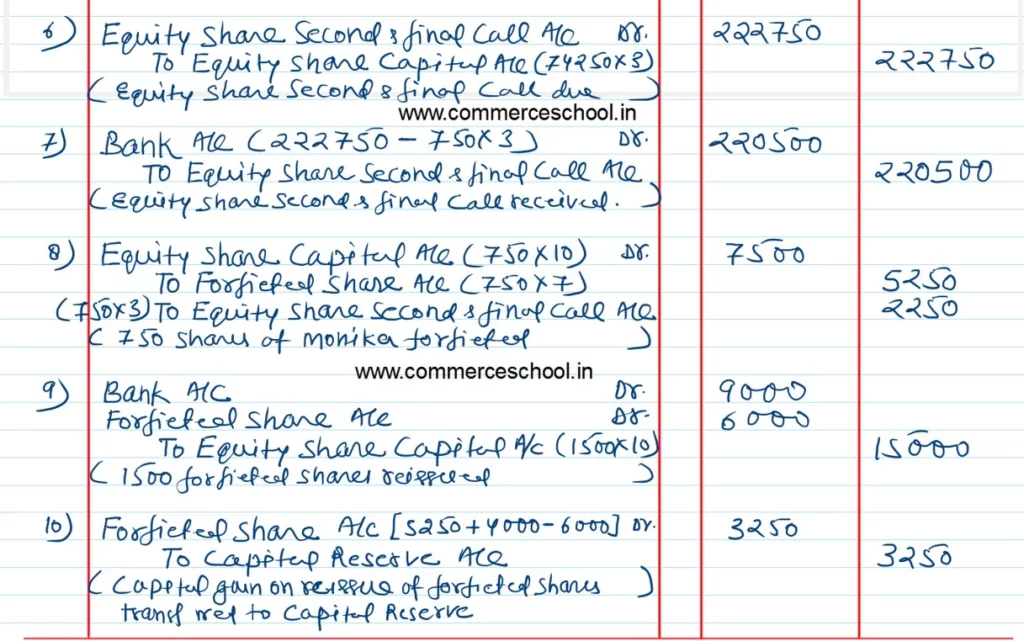 6) Equity Share Second & final Call A/c Dr. 222750
To Equity Share Capital A/c (74250X3) 222750
( Equity Share Second & final Call due )
www.commerceschool.in
7) Bank A/c (222750 - 750X3) Dr. 220500
To Equity Share Second & final Call A/c 220500
( Equity Share Second & final Call received. )
8) Equity Share Capital A/c (750X10) Dr. 7500
To Forfieted Share A/c (750X7) 5250
(750X3) To Equity Share Second & final Call A/c 2250
( 750 Shares of Monika forfieted )
www.commerceschool.in
9) Bank A/C Dr. 9000
Forfieted Share A/c Dr. 6000
To Equity Share Capital A/c (1500X10) 15000
( 1500 forfieted shares reissued )
10) Forfieted Share A/c [5250+4000-6000] Dr. 3250
To Capital Reserve A/c 3250
( Capital gain on reissue of forfieted shares )
transf rred to Capital Reserve